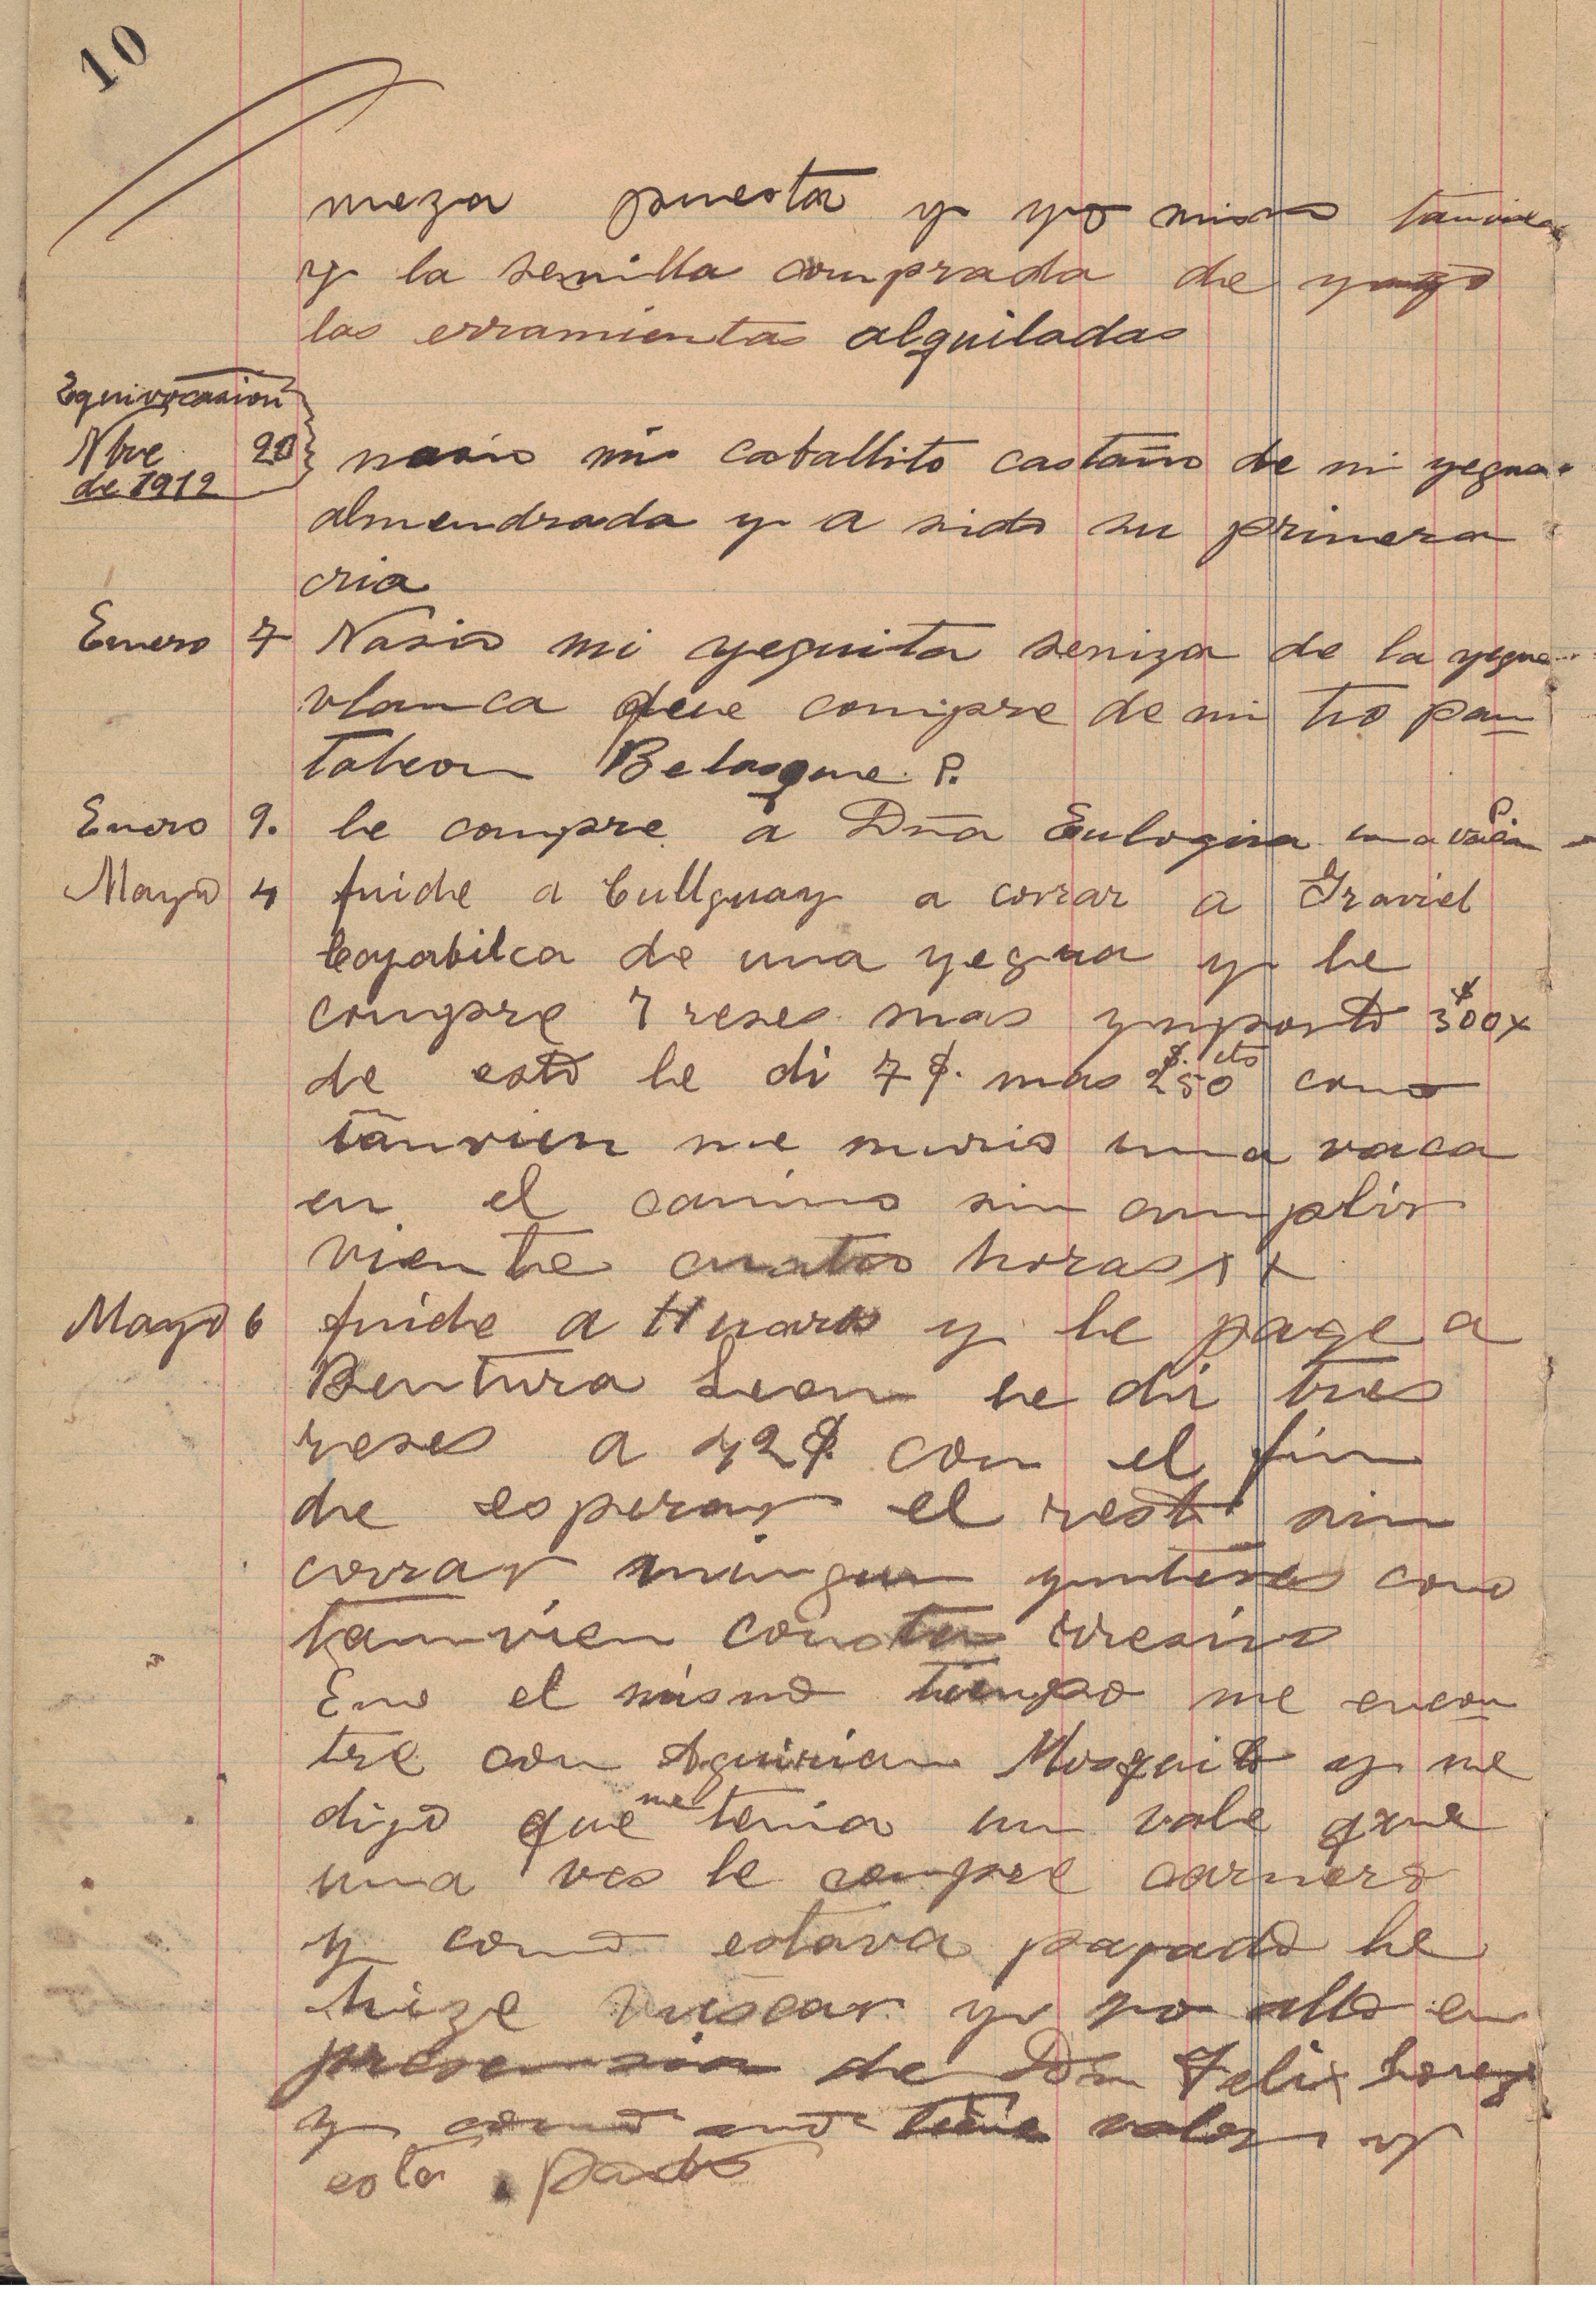 10
meza puesta y yo mismo tanvien
y la semilla comprada de
las erramientas alquiladas
Equivocasion
Nbre 20 nasio mi caballito castaño de mi yegua
de 1912
almendrada y a sido su primera
cria
Enero 7 Nasio mi yeguita seniza de la yegua
vlanca que compre de mi tio pan
taleon Belasque. P.
Enero 9. le compre a Dña Eulogia P. una vaca
Mayo 4 fuide a Cullguay a corrar a Graviel
Cayabilca de una yegua y le
compre 7 reses mas ymporto $ 300x
de esto le di 7 $. mas $. 250 cts como
tanvien me murio una vaca
en el camino sin cumplir
viente cuatro horas x x
Mayo 6 fuide a Huaro y le page a
Bentura Leon le di tres
reses a 42 $ con el fin
de esperar el resto sin
corrar ningun ynteres como
tamvien consta
Eno el mismo tiempo me encon
tre con Mosquito y me
dijo que me tenia un vale que
una ves le compre carnero
y como estava pagado le
hize vuscar y no allo en
presensia de Don Felix
y como no tiene valor y
esta